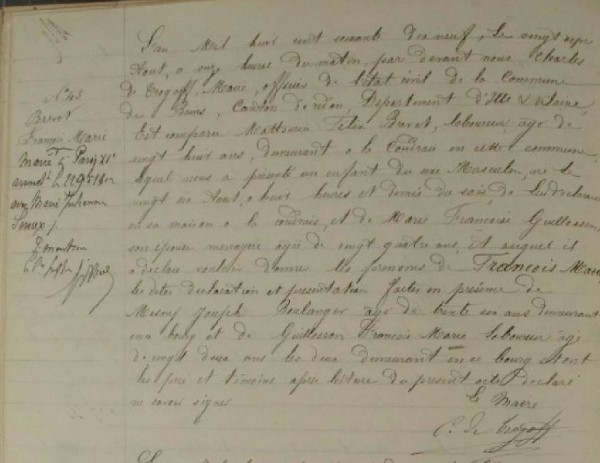 N° 48
Benot
François Marie
Marié à Paris XIe
avec Marie Julienne
L'an Mil huit cent soixante dix neuf, le vingt sept
Aout, a onze heures du matin, par devant nous Charles
de Trogoff, Maire, officier de l'état civil de la Commune
de Bains, Canton de Redon, Département d'Ille & Vilaine,
Est comparu Mathurin Félix laboureur, age de
vingt huit ans, demeurant a la Coudrais en cette commune
lequel nous a presenté un enfant du sexe Masculin, né le
vingt Aout, a huit heures et demie du soir, de lui déclarant
en sa maison a la coudrais, et de Marie Françoise Guillosson,
son épouse menagère agée de vingt quatre ans, et auquel il
a déclaré vouloir donner les prenoms de François Marie
les dites declaration et presentation faites en présence de
Joseph Boulanger age de trente six ans demeurant
au bourg et de Guillosson François Marie laboureur agé
de vingt deux ans les deux demeurant en ce bourg et ont
les père et témoins après lecture du present acte déclaré
ne savoir signer
Le Maire
C. de Trogoff